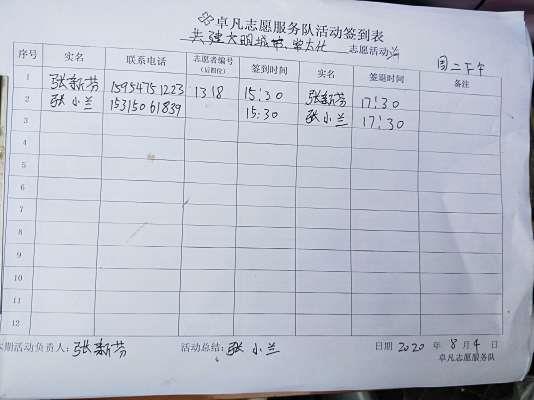 卓凡志愿服务队活动签到表
共建大明城市, 志愿活动
周二下午
序号 实名 联系电话 志愿者编号(后四位) 签到时间 实名 签退时间 备注
1 张新芳 15954751223 1318 15:30 张新芳 17:30
2 张小兰 15315061839 15:30 张小兰 17:30
3
4
5
6
7
8
9
10
11
12
本期活动负责人:张新芳 活动总结:张小兰 日期 2020 年 8 月 4 日
卓凡志愿服务队